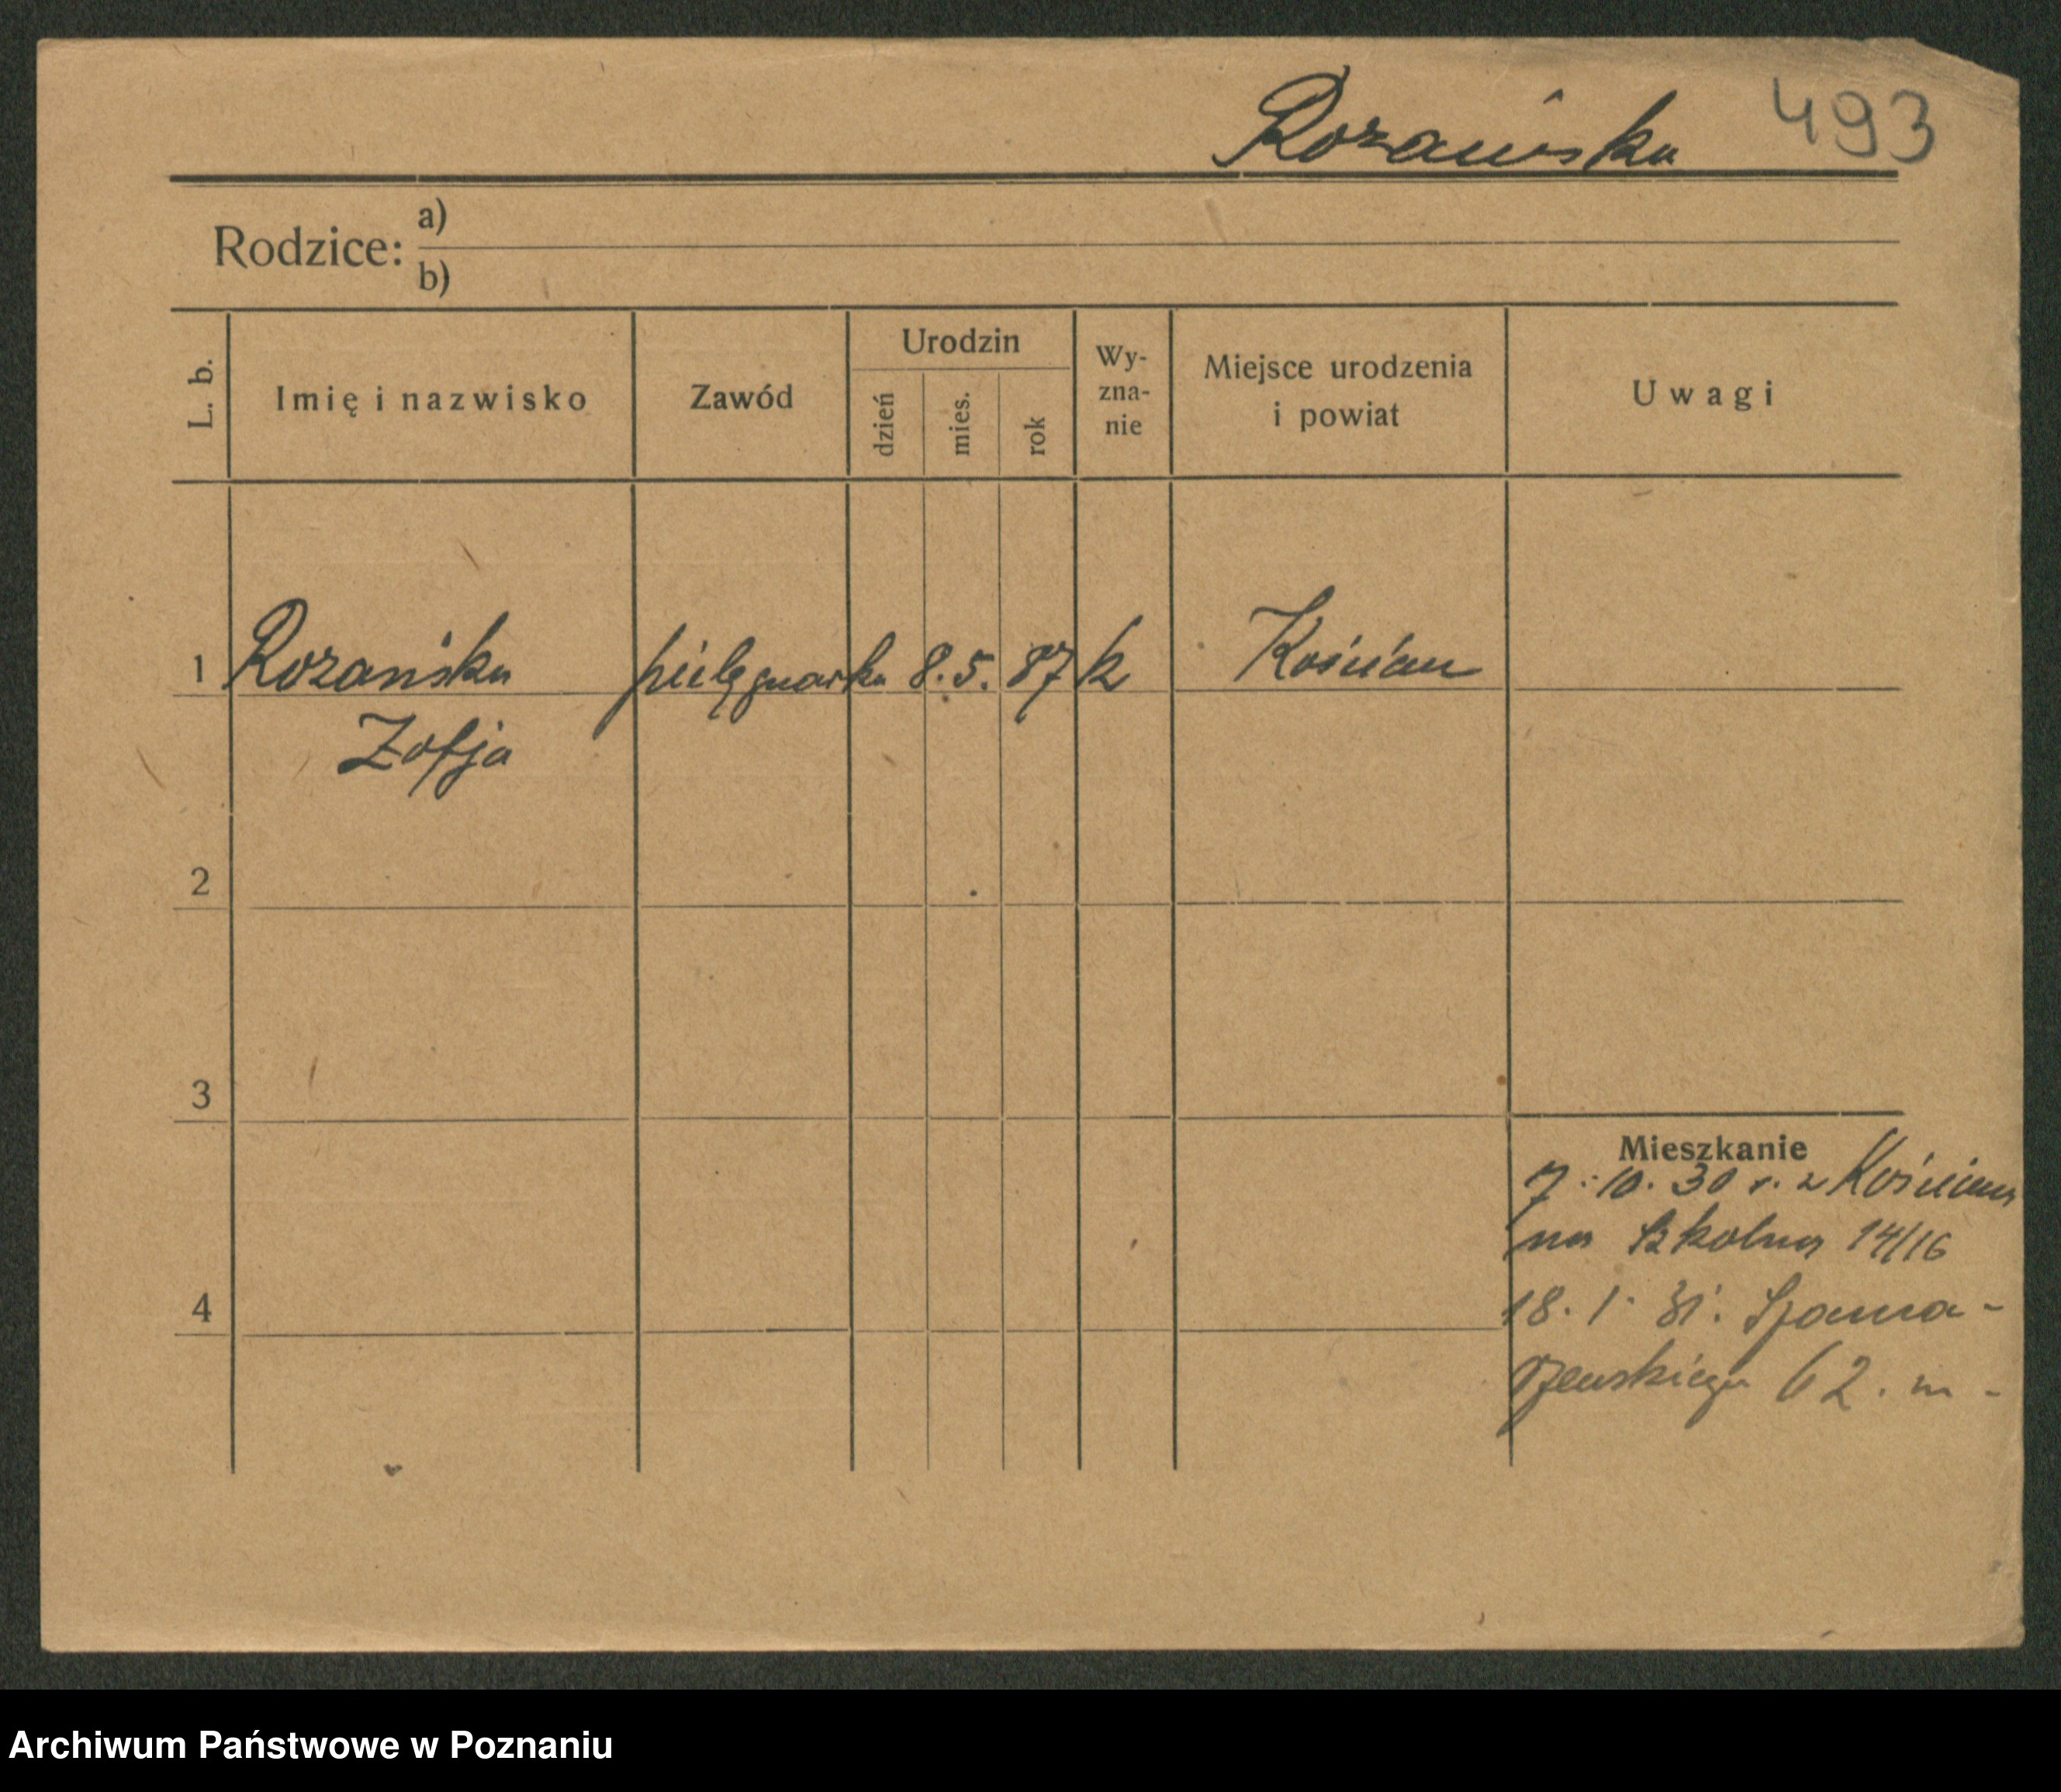 Rozańska 493
Rodzice: a)
b)
L. b. Imię i nazwisko Zawód Urodzin dzień mies. rok Wy-zna-nie Miejsce urodzenia i powiat Uwagi
1 Rozańska pielęgnarka 8. 5. 87 k Kościan
Zofja
2
3
Mieszkanie
7. 10. 30 r. z Kościana
na Szkolna 14/16
4 18. 1. 31. Szama-
rzewskiego 62. m -
Archiwum Państwowe w Poznaniu